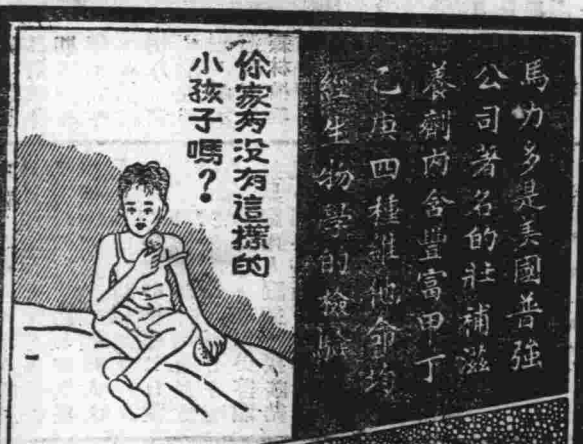 馬力多是美國普強
公司著名的壯補滋
養劑內含豐富甲丁
己庚四種維他命均
經生物學的檢驗
你家有没有這樣的
小孩子嗎？